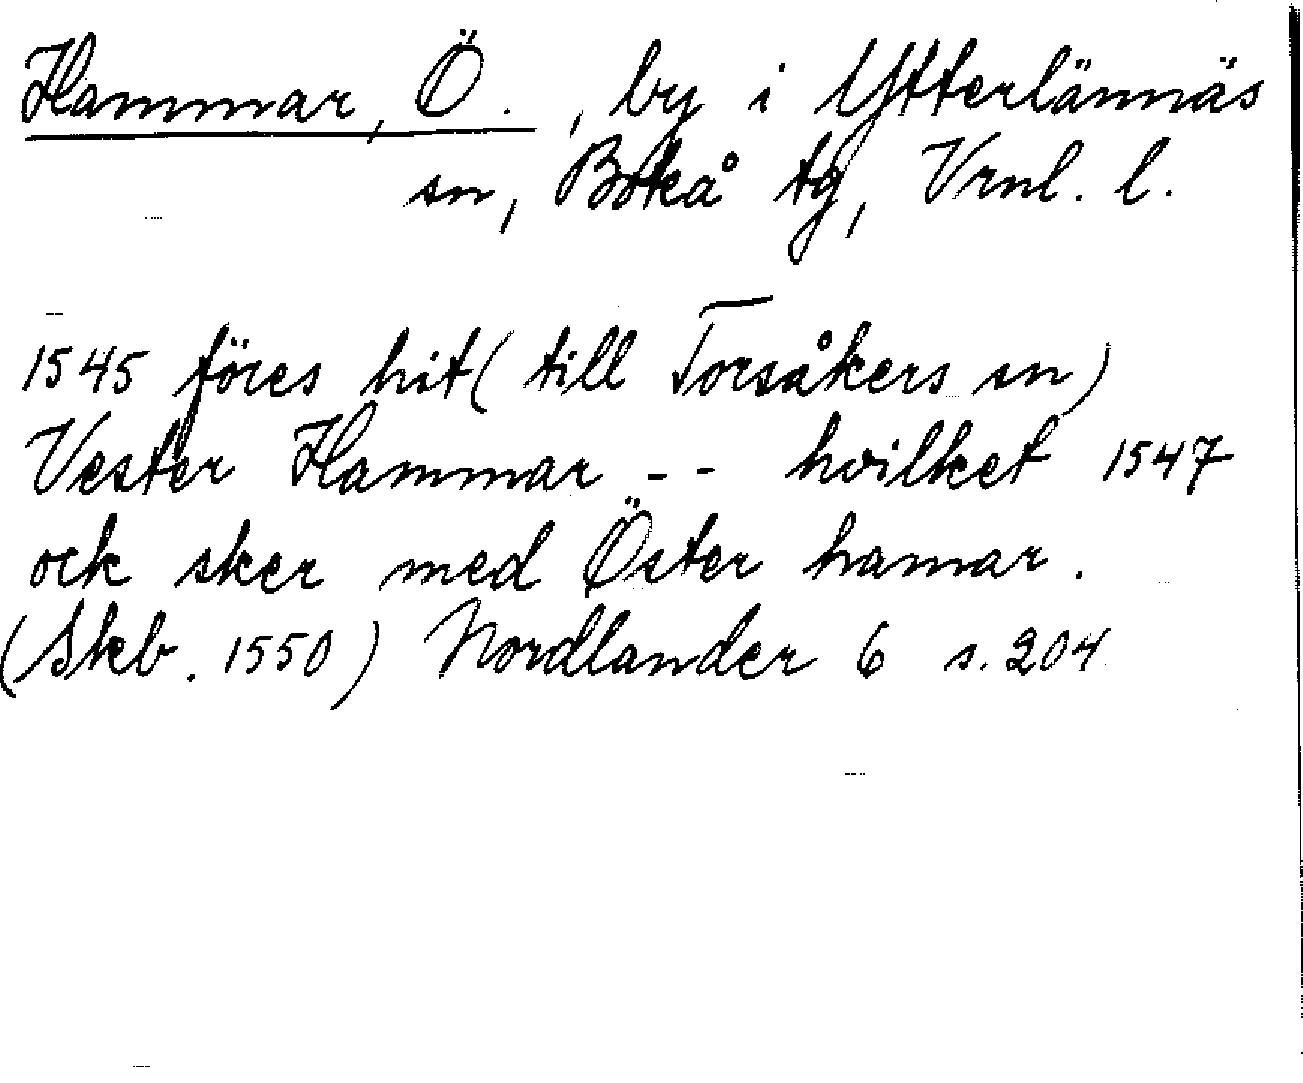 Hammar, Ö. , by i Ytterlännäs
sn, Boteå tg, Vrnl. l.
1545 föres hit ( till Torsåkers sn )
Vester Hammar -- hvilket 1547
ock sker med Öster hamar.
(Skb. 1550) Nordlander 6 s. 204